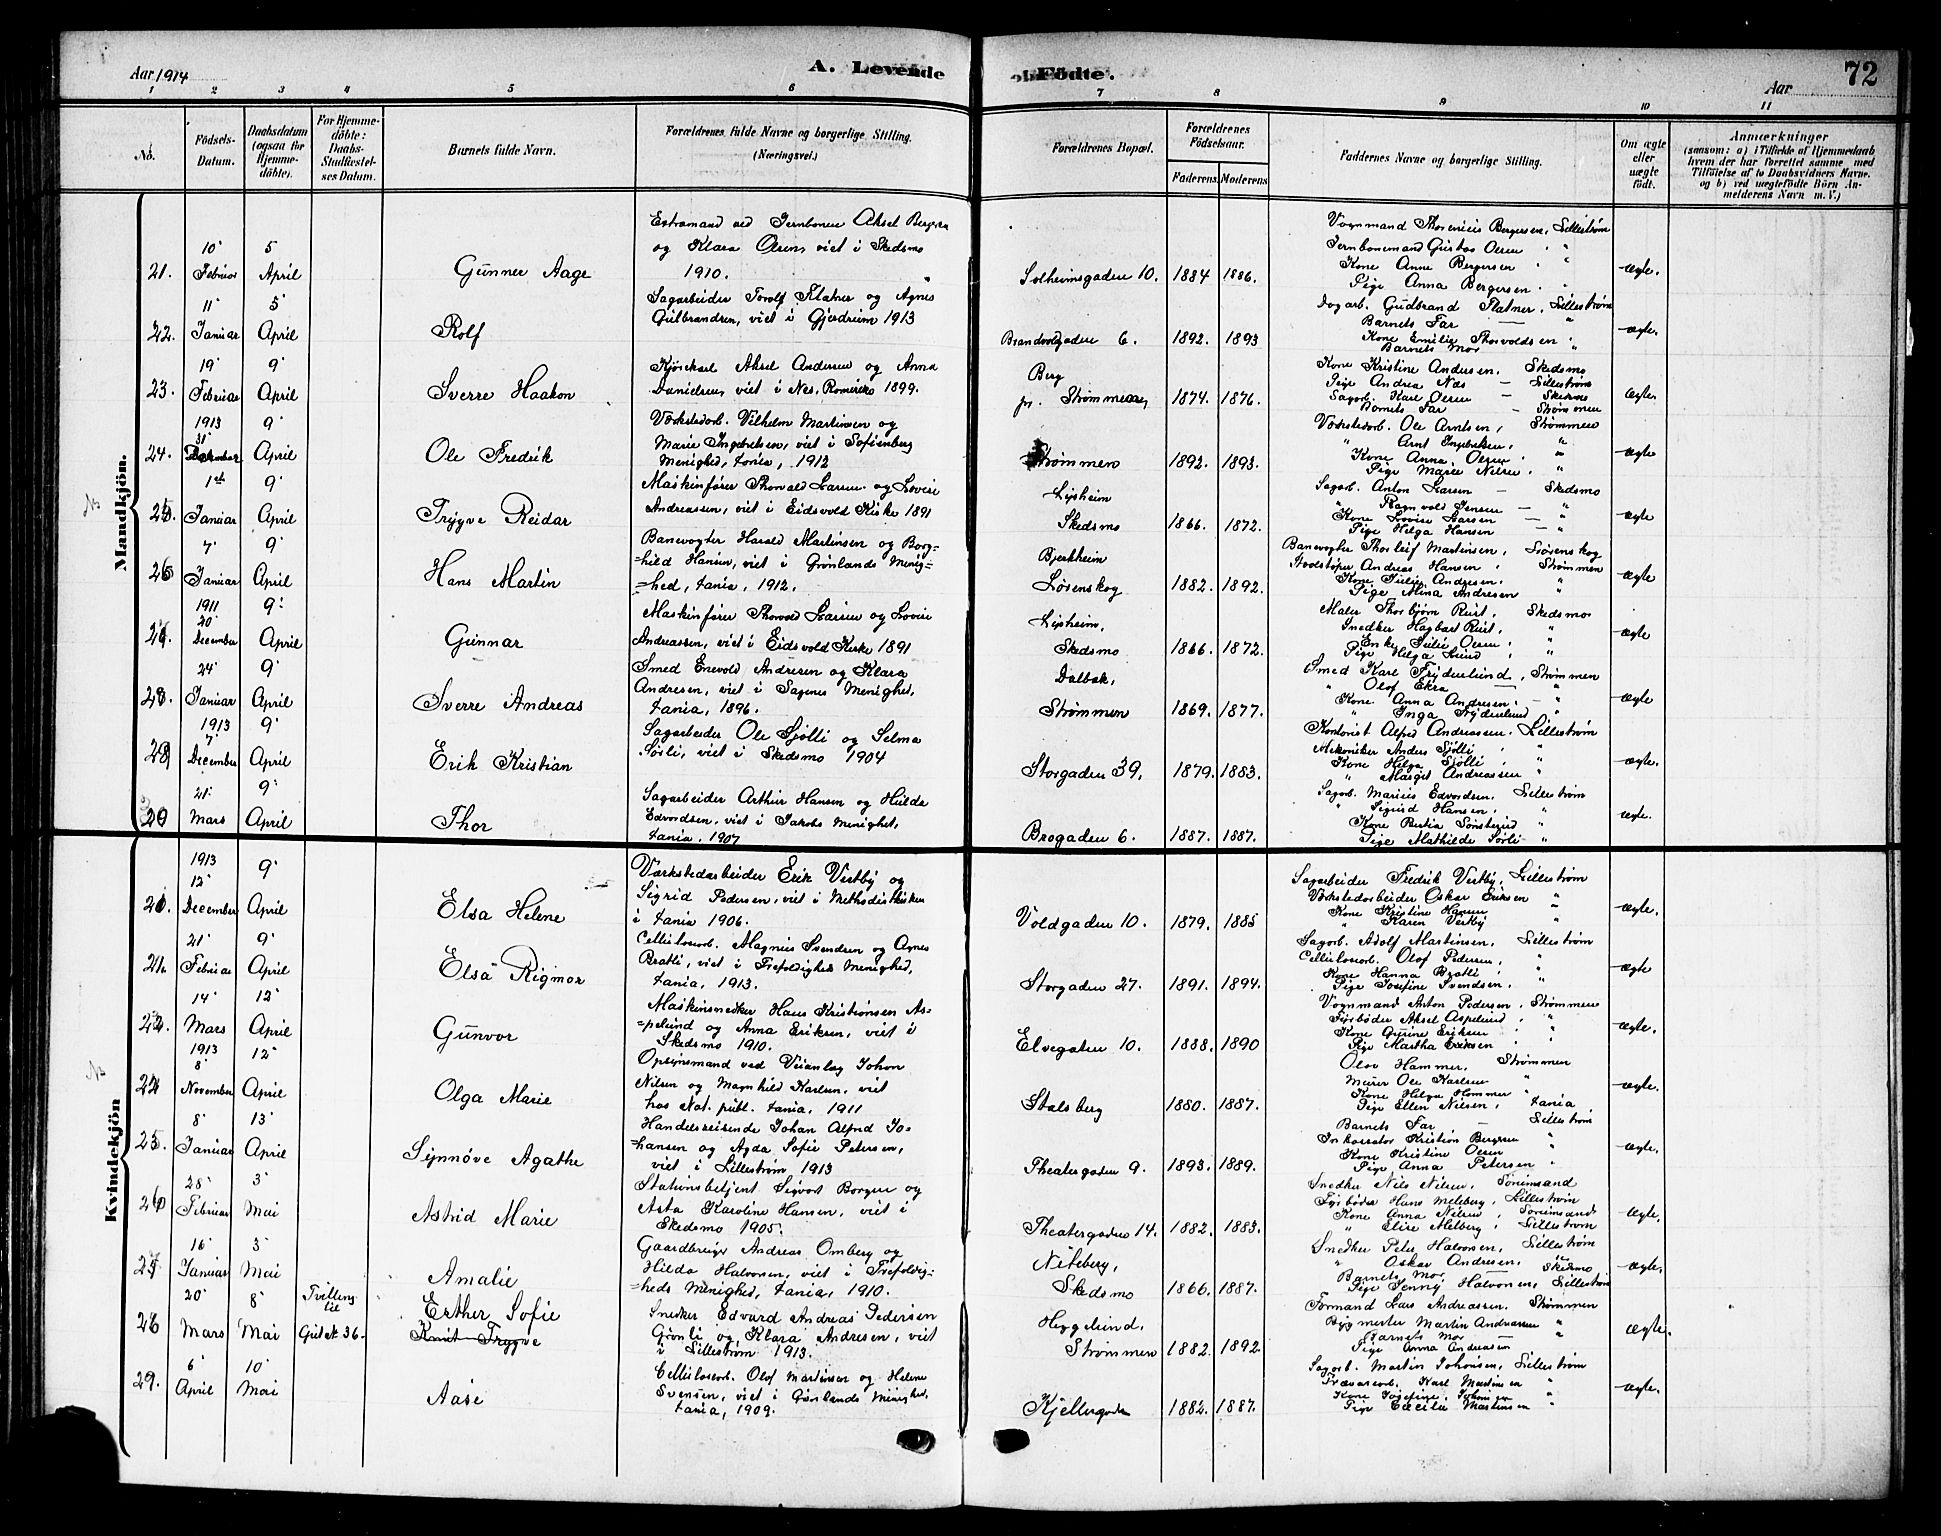 Aar 1914
A. Levende
Födte.
72
Aar
1 2 3 4 5 6 7 8 9 10 11
No.
Födsels-
Datum.
Daabsdatum
(ogsaa for
Hjemme-
döbte).
For Hjemme-
döbte:
Daabs-
Stadfæstel-
ses Datum.
Barnets fulde Navn.
Forældrenes fulde Navne og borgerlige Stilling.
(Næringsvei.)
Forældrenes Bopæl.
Forældrenes
Födselsaar.
Faderens.
Moderens.
Faddernes Navne og borgerlige Stilling.
Om ægte
eller
uægte
født.
Anmærkninger
(saasom: a) i Tilfælde af Hjemmedaab
hvem der har forrettet samme med
Tilföielse af to Daabsvidners Navne.
og b) ved uægtefödte Börn An-
melderens Navn m. V.)
Mandkjön.
21. 10 Februar
5 April
Gunner Aage
Extramand ved Jernbanen Aksel Bergersen
og Klara Olsen, viet i Skedsmo
1910.
Solheimsgaden 10. 1884 1886.
Vognmand Bergersen, Lillestrøm
Jernbanemand Gustav Olsen "
Kone Anne Bergersen "
Pige Anna Bergersen "
ægte.
22. 11 Januar
5 April
Rolf
Sagarbeider Torolf Flatner og Agnes
Gulbrandsen, viet i Gjerdrum 1913
Brandvolgaden 6. 1892. 1893
Dagarb. Gudbrand Flatner, Lillestrøm
Barnets Far — "
Kone Emilie Thorvaldsen "
Barnets Mor "
ægte.
23. 19 Februar
9 April
Sverre Haakon
Aksel Andersen og Anna
Danielsen, viet i Nes, Romerike 1899.
Berg
pr. Strømmen, 1874. 1876.
Kone Kristine Andersen, Skedsmo
Pige Andrea Næs — Lillestrøm
Sagarb. Karl Olsen — Skedsmo
Barnets Far — Strømmen
ægte.
24. 1913 31 December
9 April
Ole Fredrik
Værkstedarb. Vilhelm Martinsen og
Marie Ingebretsen, viet i Sofienberg
Menighed, Kania, 1912
Strømmen 1892. 1893.
Værkstedarb. Ole Arntsen, Strømmen
" Arnt Ingebretsen, "
Kone Anna Olsen "
Pige Marie Nilsen "
ægte
25. 1ste Januar
9 April
Trygve Reidar
Maskinfører Thorvald Larsen og Lovise
Andreassen, viet i Eidsvold Kirke 1891
Lysheim
Skedsmo 1866. 1872.
Sagarb. Anton Larsen — Skedsmo
Ragnvald Jensen — "
Kone Lovise Larsen — "
Pige Helga Hansen — "
ægte
26. 7 Januar
9 April
Hans Martin
Banevogter Harald Martinsen og Borg=
=hild Hansen, viet i Grønlands Menig=
=hed, Kania, 1912.
Bjerkheim
Lørenskog 1882. 1892.
Banevogter Thorleif Martinsen, Lørenskog
Andreas Hansen, Strømmen
Kone Julie Andresen, "
Pige Mina Andresen "
ægte
27. 1911 20 December
9 April
Gunnar
Maskinfører Thorvald Larsen og Lovise
Andreassen, viet i Eidsvold Kirke 1891
Lysheim,
Skedsmo 1866. 1872.
Maler Thorbjørn Rust, Skedsmo
Snedker Hagbart Rust, "
Enke Julie Olsen, "
Pige Helga Lund, "
ægte
28. 24 Januar
9 April
Sverre Andreas
Smed Enevold Andresen og Klara
Andresen, viet i Sagenes Menighed,
Kania, 1896.
Dalbak,
Strømmen 1869. 1877.
Smed Karl Frydenlund, Strømmen
" Olof Ekra — "
Kone Anna Andresen — "
" Inga Frydenlund "
ægte
29 1913 7 December
9 April
Erik Kristian
Sagarbeider Ole Sjølli og Selma
Sørli, viet i Skedsmo 1904
Storgaden 39, 1879. 1883.
Kontorist Alfred Andreassen, Lillestrøm
Mekaniker Anders Sjølli "
Kone Helga Sjølli "
" Margit Andreassen "
ægte.
30 21 Mars
9 April
Thor
Sagarbeider Arthur Hansen og Hulda
Edvardsen, viet i Jakobs Menighet,
Kania, 1907
Brogaden 6. 1887. 1887.
Sagarb. Marius Edvardsen, Lillestrøm
" Sigurd Hansen, "
Kone Bertia Sønsterud "
Pige Mathilde Sørli "
ægte.
Kvindekjön
20. 1913 12 December
9 April
Elsa Helene
Værkstedarbeider Erik Vestby og
Sigrid Pedersen, viet i Methodistkirken
i Kania 1906.
Voldgaden 10. 1879. 1885
Sagarbeider Fredrik Vestby, Lillestrøm
Værkstedarbeider Oskar Eriksen "
Kone Kristine Hansen "
" Karen Vestby "
ægte.
21. 21 Februar
9 April
Elsa Rigmor
Cellulosearb. Magnus Svendsen og Agnes
Bratli, viet i Trefoldigheds Menighed,
Kania, 1913.
Storgaden 27. 1891. 1894.
Sagarb. Adolf Martinsen, Lillestrøm
Cellulosearb. Olof Pedersen, "
Kone Hanna Bratli "
Pige Josefine Svendsen, "
ægte
14 Mars
12 April
Gunvor
Maskinsnedker Hans Kristiansen As=
=pelund og Anna Eriksen, viet i
Skedsmo 1910.
Elvegaten 10. 1888. 1890
Vognmand Anton Pedersen, Strømmen
Fyrbøder Aksel Aspelund, "
Kone Gurine Eriksen "
Pige Martha Eriksen "
ægte.
1913 8 November
12 April
Olga Marie
Opsynsmand ved Veianlæg Johan
Nilsen og Magnhild Karlsen, viet
hos Not. publ. Kania, 1911
Stalsberg 1880. 1887.
Olav Hammer, Strømmen
Murer Ole Karlsen "
Kone Helga Hammer "
Pige Ellen Nilsen, Kania
ægte.
8 Januar
13 April
Synnöve Agathe
Handelsreisende Johan Alfred Jo=
=hansen og Agda Sofie Petersen,
viet i Lillestrøm 1913
Theatergaden 9. 1893. 1889.
Barnets Far — Lillestrøm
Inkassator Kristian Bergersen "
Kone Kristine Olsen "
Pige Anna Petersen "
ægte.
28 Februar
3 Mai
Astrid Marie
Stationsbetjent Sigvart Borgen og
Asta Karoline Hansen, viet i
Skedsmo 1905.
Theatergaden 14. 1882. 1883.
Snedker Nils Nilsen, Sørumsand
Fyrbøder Hans Melberg, Lillestrøm
Kone Anna Nilsen, Sørumsand
" Elise Melberg, Lillestrøm
ægte,
27 16 Januar
3 Mai
Amalie
Gaardbruger Andreas Omberg og
Hilda Halvorsen, viet i Trefoldig=
=heds Menighed, Kania, 1910.
Niteberg,
Skedsmo 1866. 1887.
Snedker Peter Halvorsen, Lillestrøm
" Oskar Andresen, Skedsmo
Barnets Mor "
Pige Jenny Halvorsen, Lillestrøm
ægte,
28 20 Mars
8 Mai
Tvilling
til
Gut No 36.
Esther Sofie
Knut Trygve
Snekker Edvard Andreas Pedersen
Grønli og Klara Andresen, viet
i Lillestrøm 1913.
Hyggelund,
Strømmen 1882. 1892.
Formand Lars Andreassen, Strømmen
Bygmester Martin Andreassen "
Barnets Mor — "
Pige Anna Andreassen "
ægte.
29. 6 April
10 Mai
Aase
Cellulosearb. Olof Martinsen og Helene
Svensen, viet i Grønlands Menighed,
Kania, 1909.
Kjellergaden 1882. 1887.
Sagarb. Martin Johansen, Lillestrøm
Trævarearb. Karl Martinsen "
Kone Josefine Johansen "
Pige Cecilie Martinsen "
ægte.